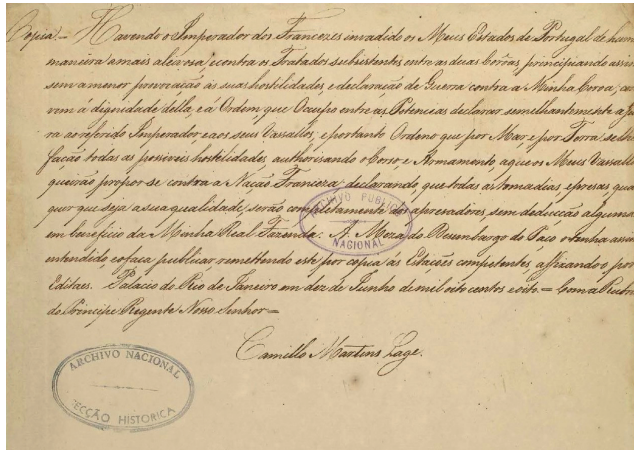 Copia.= Havendo o Imperador dos Francezes invadido os Meus Estados de Portugal de huma
maneira a mais aleivosa, e contra os Tratados subsistentes entre as duas Corôas, principiando assim
sem a menor provocação as suas hostilidades, e declaração de Guerra contra a Minha Coroa; con
vem á dignidade della, e á Ordem que Occupo entre as Potencias declarar semelhantemente a Guer
ra ao referido Imperador e aos seus Vassallos; e portanto Ordeno que por Mar e por Terra se lhe
fação todas as possiveis hostilidades authorisando o Corso e Armamento, a que os Meus Vassallos
queirão propor-se contra a Nação Franceza; declarando, que todas as tomadias, e prezas qual
quer que seja a sua qualidade, serão completamente dos aprezadores, sem deducção alguma
em beneficio da Minha Real Fazenda. A Meza do Desembargo do Paço o tenha assim
intendido, e o faça publicar remettendo este por copia ás Estações competentes, e affixando-o por
Editaes. Palacio do Rio de Janeiro em dez de Junho de mil oito centos e oito.= Com a Rubrica
do Principe Regente Nosso Senhor=
Camillo Martins Lage.
ARCHIVO PUBLICO
NACIONAL
ARCHIVO NACIONAL
SECÇÃO HISTORICA